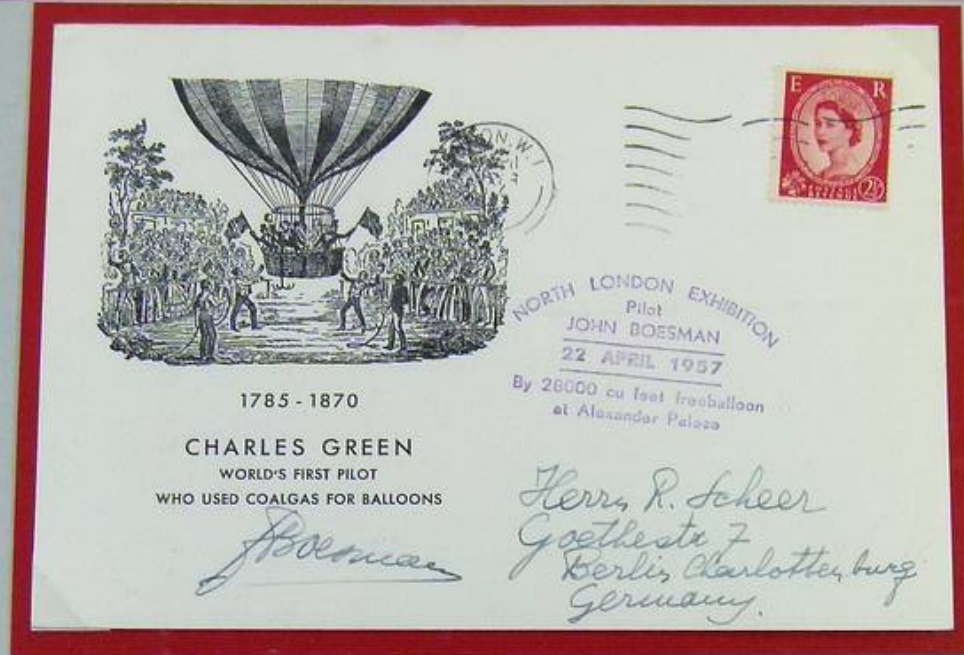 E R
2½
ON. W.1
NORTH LONDON EXHIBITION
Pilot
JOHN BOESMAN
22 APRIL 1957
By 28000 cu feet freeballoon
at Alexander Palace
1785 - 1870
CHARLES GREEN
WORLD'S FIRST PILOT
WHO USED COALGAS FOR BALLOONS
JBoesman
Herrn R. Scheer
Goethestr 7
Berlin Charlottenburg
Germany.